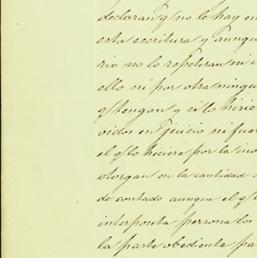 declaran q⁠e no le hay en
esta escritura y aunqu
rio no lo repetiran ni
ello ni por otra ningu
q⁠e tengan y si lo hicie
oidos en juicio ni fue
el q⁠e lo hiciere por la
otorgan en la cantidad
de contado aunque el q⁠e
interponta persona los
la parte obediente pa